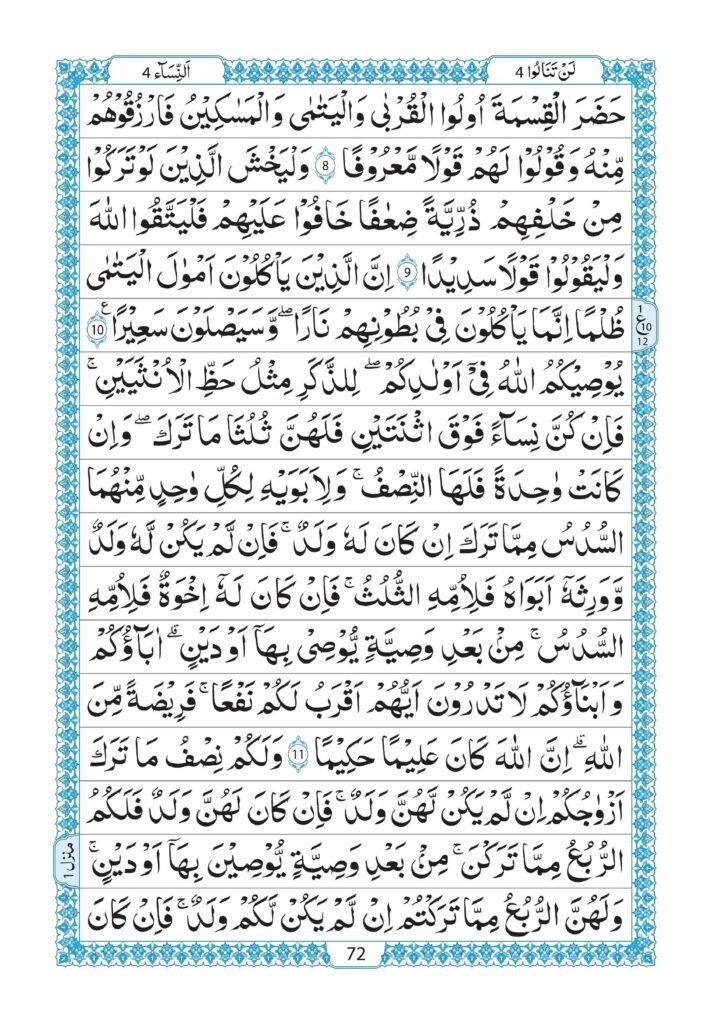 لَنْ تَنَالُوا 4
اَلنِّسَآء 4
حَضَرَ الْقِسْمَةَ اُولُوا الْقُرْبٰى وَالْيَتٰمٰى وَالْمَسٰكِيْنُ فَارْزُقُوْهُمْ
مِّنْهُ وَقُوْلُوْا لَهُمْ قَوْلًا مَّعْرُوْفًا 8 وَلْيَخْشَ الَّذِيْنَ لَوْ تَرَكُوْا
مِنْ خَلْفِهِمْ ذُرِّيَّةً ضِعٰفًا خَافُوْا عَلَيْهِمْ فَلْيَتَّقُوا اللّٰهَ
وَلْيَقُوْلُوْا قَوْلًا سَدِيْدًا 9 اِنَّ الَّذِيْنَ يَاْكُلُوْنَ اَمْوٰلَ الْيَتٰمٰى
ظُلْمًا اِنَّمَا يَاْكُلُوْنَ فِيْ بُطُوْنِهِمْ نَارًا ۖ وَّسَيَصْلَوْنَ سَعِيْرًا ع 10
1 ع 10 12
يُوْصِيْكُمُ اللّٰهُ فِيْٓ اَوْلٰدِكُمْ ۖ لِلذَّكَرِ مِثْلُ حَظِّ الْاُنْثَيَيْنِ ۚ
فَاِنْ كُنَّ نِسَآءً فَوْقَ اثْنَتَيْنِ فَلَهُنَّ ثُلُثَا مَا تَرَكَ ۖ وَاِنْ
كَانَتْ وٰحِدَةً فَلَهَا النِّصْفُ ۚ وَلِاَبَوَيْهِ لِكُلِّ وٰحِدٍ مِّنْهُمَا
السُّدُسُ مِمَّا تَرَكَ اِنْ كَانَ لَهٗ وَلَدٌ ۚ فَاِنْ لَّمْ يَكُنْ لَّهٗ وَلَدٌ
وَّوَرِثَهٗٓ اَبَوَاهُ فَلِاُمِّهِ الثُّلُثُ ۚ فَاِنْ كَانَ لَهٗٓ اِخْوَةٌ فَلِاُمِّهِ
السُّدُسُ ۚ مِنْۢ بَعْدِ وَصِيَّةٍ يُّوْصِيْ بِهَآ اَوْ دَيْنٍ ۗ اٰبَآؤُكُمْ
وَاَبْنَآؤُكُمْ لَا تَدْرُوْنَ اَيُّهُمْ اَقْرَبُ لَكُمْ نَفْعًا ۚ فَرِيْضَةً مِّنَ
اللّٰهِ ۗ اِنَّ اللّٰهَ كَانَ عَلِيْمًا حَكِيْمًا 11 وَلَكُمْ نِصْفُ مَا تَرَكَ
اَزْوٰجُكُمْ اِنْ لَّمْ يَكُنْ لَّهُنَّ وَلَدٌ ۚ فَاِنْ كَانَ لَهُنَّ وَلَدٌ فَلَكُمُ
الرُّبُعُ مِمَّا تَرَكْنَ ۚ مِنْۢ بَعْدِ وَصِيَّةٍ يُّوْصِيْنَ بِهَآ اَوْ دَيْنٍ ۚ
منزل 1
وَلَهُنَّ الرُّبُعُ مِمَّا تَرَكْتُمْ اِنْ لَّمْ يَكُنْ لَّكُمْ وَلَدٌ ۚ فَاِنْ كَانَ
72